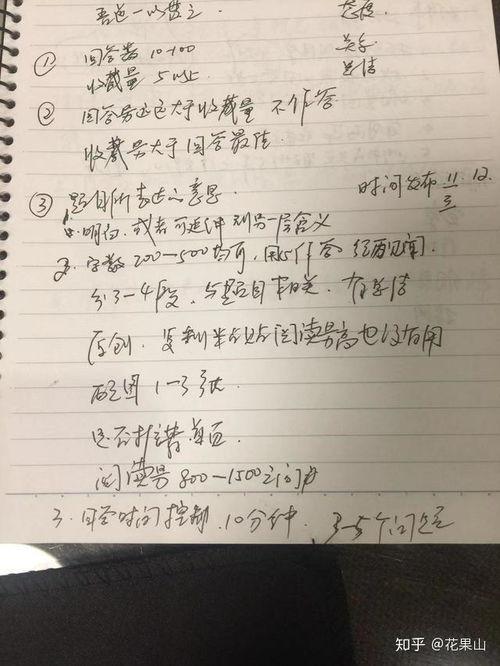 吾道一以贯之 态度
① 回答者 10-100 关系
收藏量 5以上 总结
② 回答量远远大于收藏量 不作答
收藏量大于回答最佳
③ 题目所表达的意思 时间发布 11 12
明白，或者可延伸到另一层含义
2. 字数 200—500均可，用心作答 经历见闻
分3—4段，与题目相关，有总结
原创，复制粘贴阅读量高也没有用
配图 1—3张
是否推荐首页
阅读量 800—1500之间
3. 回答时间控制，10分钟，3-5个问题
知乎 @花果山